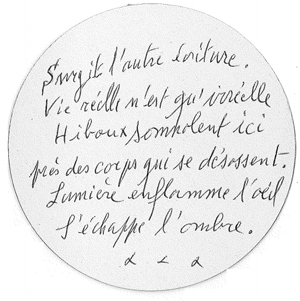 Surgit l'autre écriture.
Vie réelle n'est qu'irréelle
Hiboux somnolent ici
près des corps qui se désossent.
Lumière enflamme l'œil
S'échappe l'ombre.